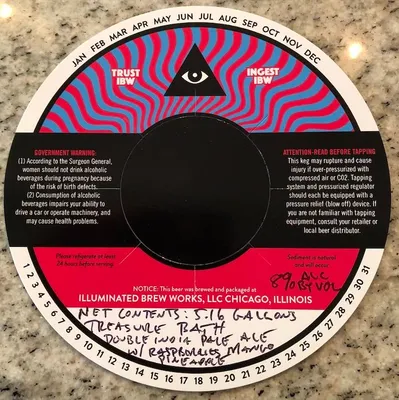 JAN FEB MAR APR MAY JUN JUL AUG SEP OCT NOV DEC
TRUST
IBW
INGEST
IBW
GOVERNMENT WARNING:
(1) According to the Surgeon General,
women should not drink alcoholic
beverages during pregnancy because
of the risk of birth defects.
(2) Consumption of alcoholic
beverages impairs your ability to
drive a car or operate machinery, and
may cause health problems.
ATTENTION-READ BEFORE TAPPING
This keg may rupture and cause
injury if over-pressurized with
compressed air or CO2. Tapping
system and pressurized regulator
should each be equipped with a
pressure relief (blow off) device. If
you are not familiar with tapping
equipment, consult your retailer or
local beer distributor.
Please refrigerate at least
24 hours before serving.
Sediment is natural
and will occur.
8% ALC
BY VOL
NOTICE: This beer was brewed and packaged at
ILLUMINATED BREW WORKS, LLC CHICAGO, ILLINOIS
NET CONTENTS: 5.16 GALLONS
TREASURE BATH
DOUBLE INDIA PALE ALE
W/ RASPBERRIES MANGO
PINEAPPLE
1 2 3 4 5 6 7 8 9 10 11 12 13 14 15 16 17 18 19 20 21 22 23 24 25 26 27 28 29 30 31